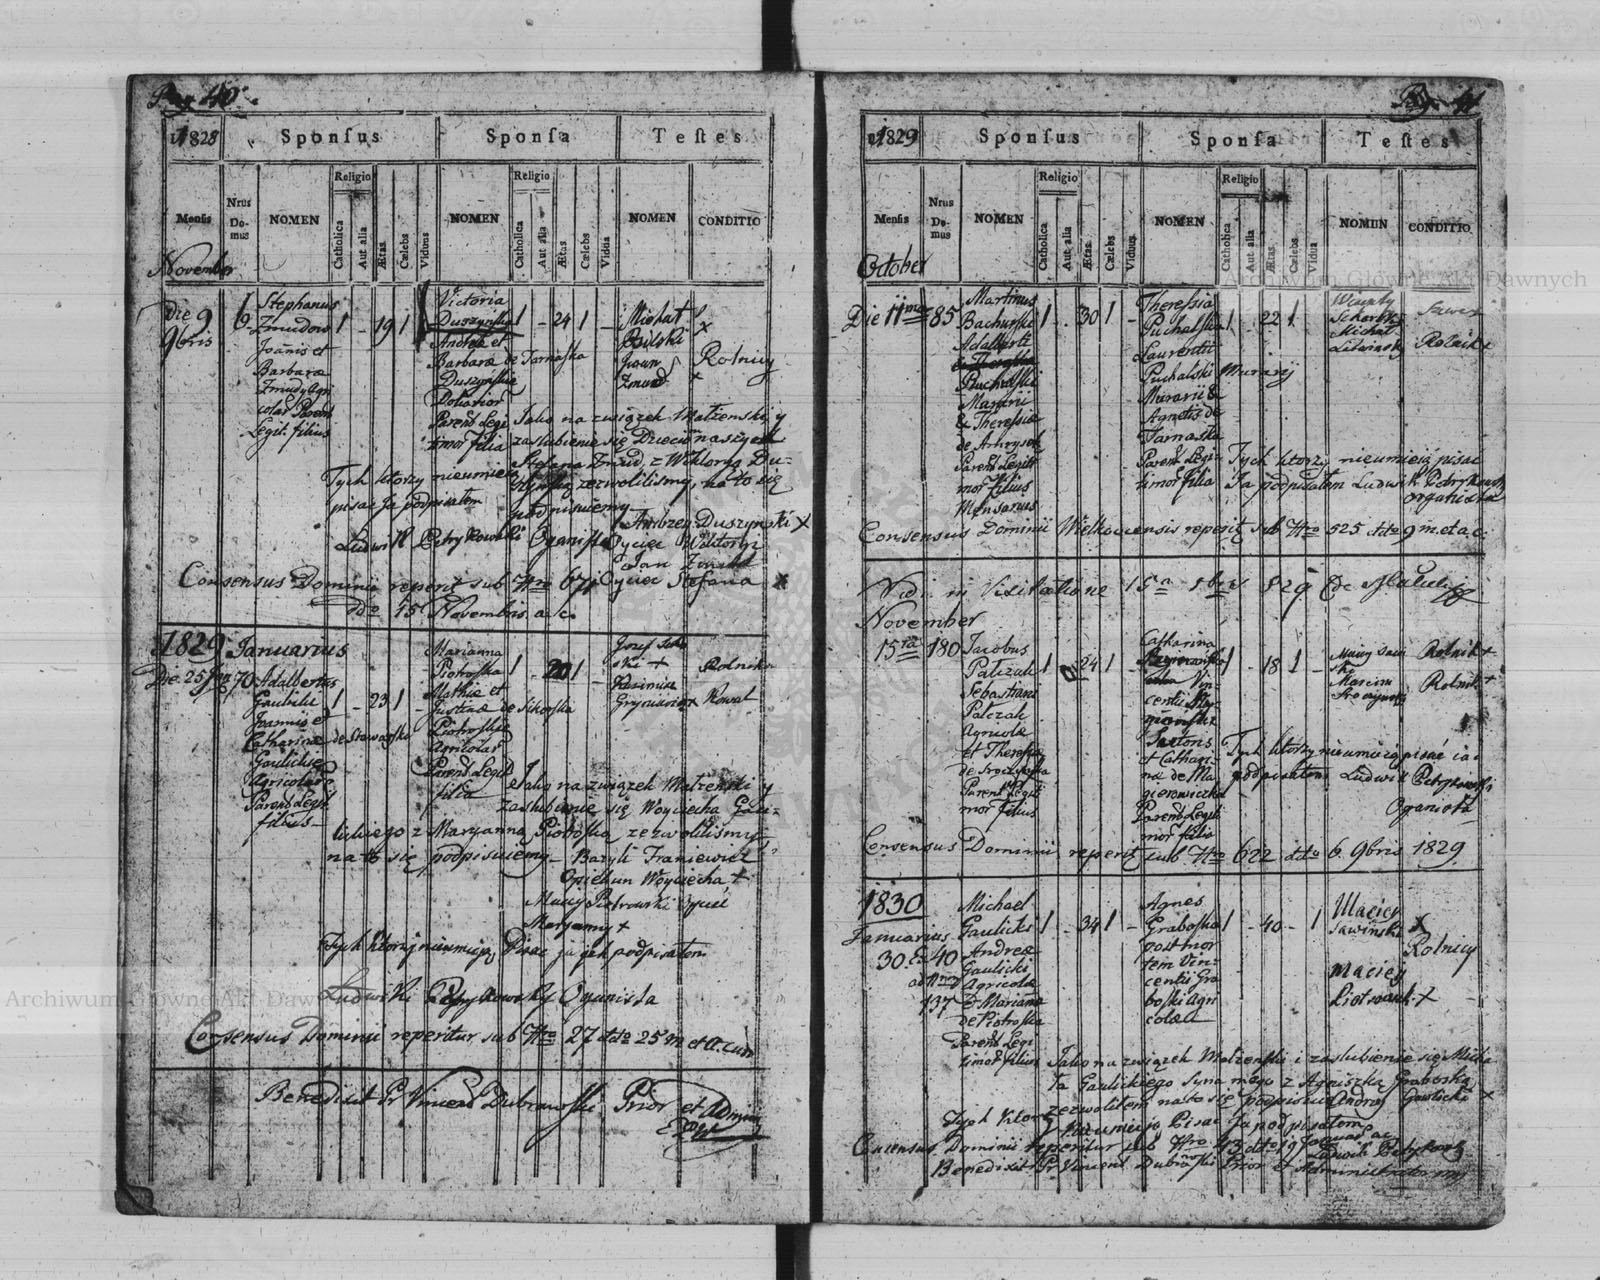 Pag 40
1828
Sponſus
Sponſa
Teſtes
Menſis
Nrus Do-mus
NOMEN
Religio
Catholica
Aut alia
Ætas
Cælebs
Viduus
NOMEN
Religio
Catholica
Aut alia
Ætas
Cælebs
Vidua
NOMEN
CONDITIO
November
Die 9
9bris
6
Stephanus
Zmudow
Joannis et
Barbaræ
Zmudy Agri
colar Parent
Legit. filius
1 - 19 1
Victoria
Duszynska
Andreæ et
Barbaræ de Tarnaska
Duszyńskie
Parent Legi
timor filia
1 - 24 1 -
Michał
Bulski x
Jwan
Zmud +
Rolnicy
Jako na związek Małżenski y
zaslubienie się Dzieciom naszych
Stefana Zmud, z Wiktoryą Du-
szyńską zezwoliliśmy, na to się
podpisuiemy
Tych ktorzy nieumieią
pisac Ja podpisałem
Ludwik Petrykowski Oganista
Ambrzey Duszynski x
Oyciec Wiktoryi
Jan Zmud
Oyciec Stefana x
Consensus Dominii reperit sub Nro 671
ddo 15 Novembris a. c.
1829 Januarius
Die 25 Jan
70
Adalbertus
Gaulicki
Joannis et
Catharinæ de Stawarska
Gaulickie
Agricolar
Parent Legit
filius
1 - 23 1 -
Marianna
Piotroska
Mathiæ et
Justinæ de Sikorska
Piotroskie
Agricolar
Parent Legit
filia
1 - 20 1 -
Jozef
ski +
Kazimirz
Gryciewicz x
Rolnik
Kowal
Jako na związek Małżenski y
zaslubienie się Woyciecha Gau-
lickiego z Maryanną Piotroską zezwoliliśmy
na to się podpisuiemy - Bazyli Franiewicz
Opiekun Woyciecha +
Maciy Piotrowski Oyciec
Maryanny +
Tych ktorzy nieumieją Pisac ja jek podpisałem
Ludwik Petrykowsky Oganista
Consensus Dominii reperitur sub Nro 27 ddo 25 m et a. curr
Benedixit Pr Vincens Dubrawski Prior et Admini
Pag 41
1829
Sponſus
Sponſa
Teſtes
Menſis
Nrus Do-mus
NOMEN
Religio
Catholica
Aut alia
Ætas
Cælebs
Viduus
NOMEN
Religio
Catholica
Aut alia
Ætas
Cælebs
Vidua
NOMEN
CONDITIO
October
Die 11ma
85
Martinus
Bachurski
Adalberti
Puchalski
& Theresiæ
Parent Legiti
mor filius
1 - 30 1 -
Theressia
Puchalska
Laurentii
Puchalski Murarij
Murarii &
Agnetis de
Tarnaska
Parent Legi
timor filia
1 - 22 1 -
Michał
Litwinsky
Rolnik x
Tych ktorzy nieumieią pisac
Ja podpisałem Ludwik Petrykowsk
organista
Consensus Dominii Wielkociensis reperit sub Nro 525 ddo 9 m et a c.
Vidi in Visitatione 15a 8bris 829
November
15ta
180
Jacobus
Palczak
Sebastiani
Palczak
Agricolæ
et Theresiæ
de Sroczynska
Parent Legiti
mor filius
1 24 1 -
Catharina
Vin-
centii
Sartoris
et Cathari
næ de Ma
gierowiczka
Parent Legiti
mor filia
1 - 18 1 -
Maciy Sawi
ski
Marcin
Sroczynski
Rolnik +
Rolnik +
Tych ktorzy nieumieią pisać ia
podpisałem Ludwik Petrykowski
Oganista
Consensus Dominii reperit sub Nro 622 ddo 6 9bris 1829
1830
Januarius
30
40
ad Nro
137
Michael
Gaulicki
Andreæ
Gaulicki
Agricolæ
& Marianna
de Piotroska
Parent Legi
timor filius
1 - 34 1 -
Agnes
Graboska
post mor
tem Vin-
centii Gra
boski Agri
colæ
1 - 40 - 1
Maciey
Sawinski x
Maciey
Piotrowski +
Rolnicy
Jako na związek Małżenski i zaslubienie się Micha
ła Gaulickiego Syna mego z Agniszką Graboską
zezwoliłem na to się podpisuie Andrzej Gawlicki x
Tych ktorzy nieumieją Pisac Ja podpisałem
Ludwik Petrykowsk
Concensus Dominii reperitur sub Nro 43 ddo 19 Januar ac
Benedixit Pr Vincent Dubraski Prior et Administrator mp
Archiwum Główne Akt Dawnych
Archiwum Główne Akt Dawnych